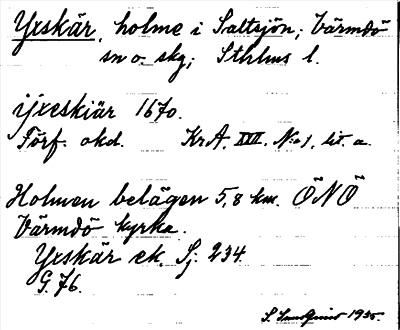 Yxskär, holme i Saltsjön; Värmdö
sn o. skg; Sthlms l.
ijxeskiär 1670.
Förf. okd. KrA. XVII. N:o 1, lit. a.
Holmen belägen 5,8 km. ÖNÖ
Värmdö kyrka.
Yxskär ek. Sj. 234.
G. 76.
S. Lundquist 1935.